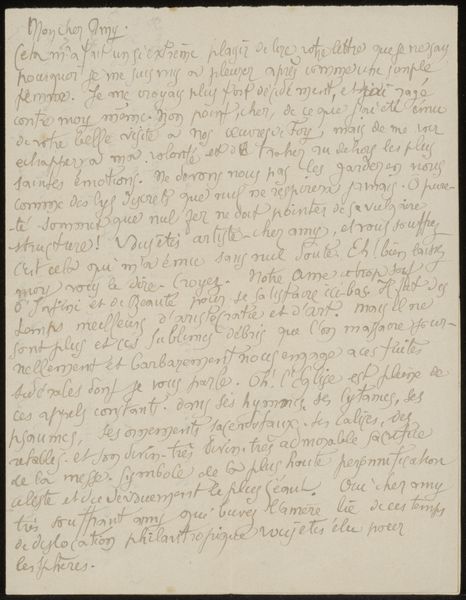 Mon cher Amy.
Cela m'a fait un si extrême plaisir de lire votre lettre que je ne sais
pourquoi je me suis mis a pleurer après comme une simple
femme. Je me croyais plus fort décidément, et j'ai ragé
contre moi même. Non point cher, de ce que j'ai été ému
de votre belle visite a nos œuvres et foy, mais de me voir
echapper a ma volonté et de trahir au dehors les plus
saintes émotions. Ne devons nous pas les garder en nous
comme des lys discrets que nul ne respirera jamais. O pure-
té sommet que nul fer ne doit pointer de sa vulgaire
structure! Vous êtes artiste - cher amy, et vous souffrez
C'est cela qui m'a ému sans nul doute. Eh! bien laissez
moy vous le dire - Croyez. Notre Ame a trop soif
d'Infini et de Beauté pour se satisfaire ici-bas. Il fut des
temps meilleurs d'aristocratie et d'art. mais il ne
sont plus et ces sublimes débris que l'on massacre jour-
nellement et barbarement nous engage a ces fuites
sidérales dont je vous parle. Oh! l'Eglise est pleine de
ces appels constants. dans ses hymnes, ses
psaumes, ses ornements sacerdotaux. ses calices, des
retables. et son divin - très divin - très admirable sacrifice
de la messe. Symbole de la plus haute personnification
céleste et du dévouement le plus géant. Oui cher amy
très souffrant amy qui buvez l'amère lie de ces temps
de dislocation philantropique vous êtes élu pour
les sphères.